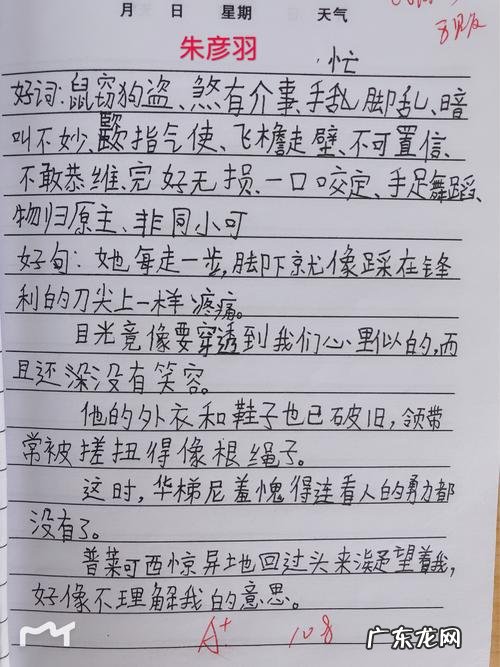 月 日 星期 天气
朱彦羽
忙
好词:鼠窃狗盗、煞有介事、手乱脚乱、暗
叫不妙、颐指气使、飞檐走壁、不可置信、
不敢恭维、完好无损、一口咬定、手足舞蹈、
物归原主、非同小可
好句:她每走一步,脚下就像踩在锋
利的刀尖上一样疼痛。
目光竟像要穿透到我们心里似的,而
且还深没有笑容。
他的外衣和鞋子也已破旧,领带
常被搓扭得像根绳子。
这时,华梯尼羞愧得连看人的勇力都
没有了。
普莱可西惊异地回过头来凝望着我,
好像不理解我的意思。
A+ 108
广东龙网